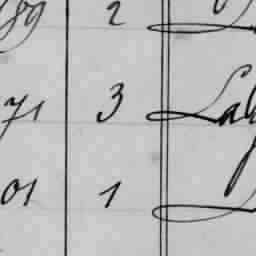 89 2
71 3 Lal
01 1